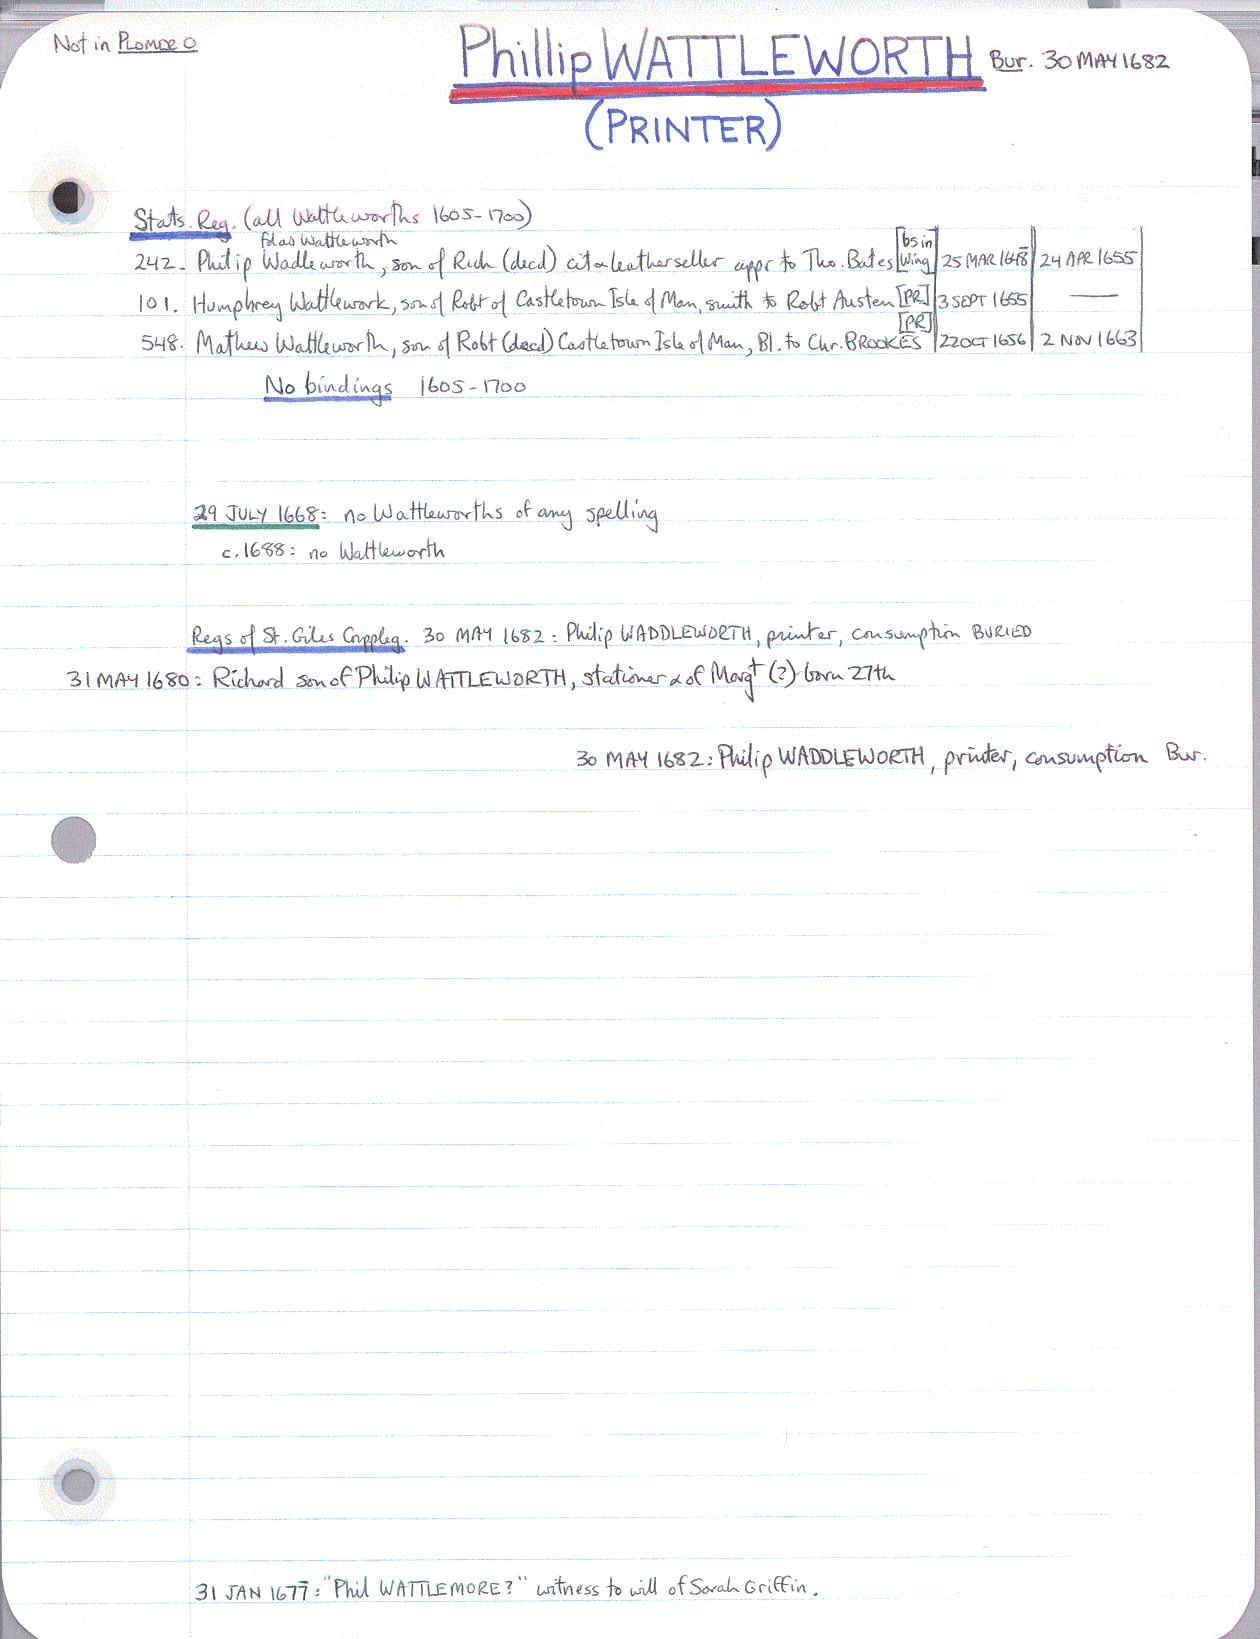 Not in PLOMER
Phillip WATTLEWORTH Bur. 30 MAY 1682
(PRINTER)
Stats. Reg. (all Wattleworths 1605-1700)
fd as Wattleworth
242. Philip Wadleworth, son of Rich (decd) cit & leatherseller appr to Tho. Bates [bs in Wing] 25 MAR 1648 24 APR 1655
101. Humphrey Wattlework, son of Robt of Castletown Isle of Man, smith to Robt Austen [PR] 3 SEPT 1655 —
548. Mathew Wattleworth, son of Robt (decd) Castletown Isle of Man, Bl. to Chr. BROOKES [PR] 22 OCT 1656 2 NOV 1663
No bindings 1605-1700
29 JULY 1668: no Wattleworths of any spelling
c. 1688: no Wattleworth
Regs of St. Giles Crippleg. 30 MAY 1682: Philip WADDLEWORTH, printer, consumption BURIED
31 MAY 1680: Richard son of Philip WATTLEWORTH, stationer & of Margt (?) born 27th
30 MAY 1682: Philip WADDLEWORTH, printer, consumption Bur.
31 JAN 1677: "Phil WATTLEMORE?" witness to will of Sarah Griffin.